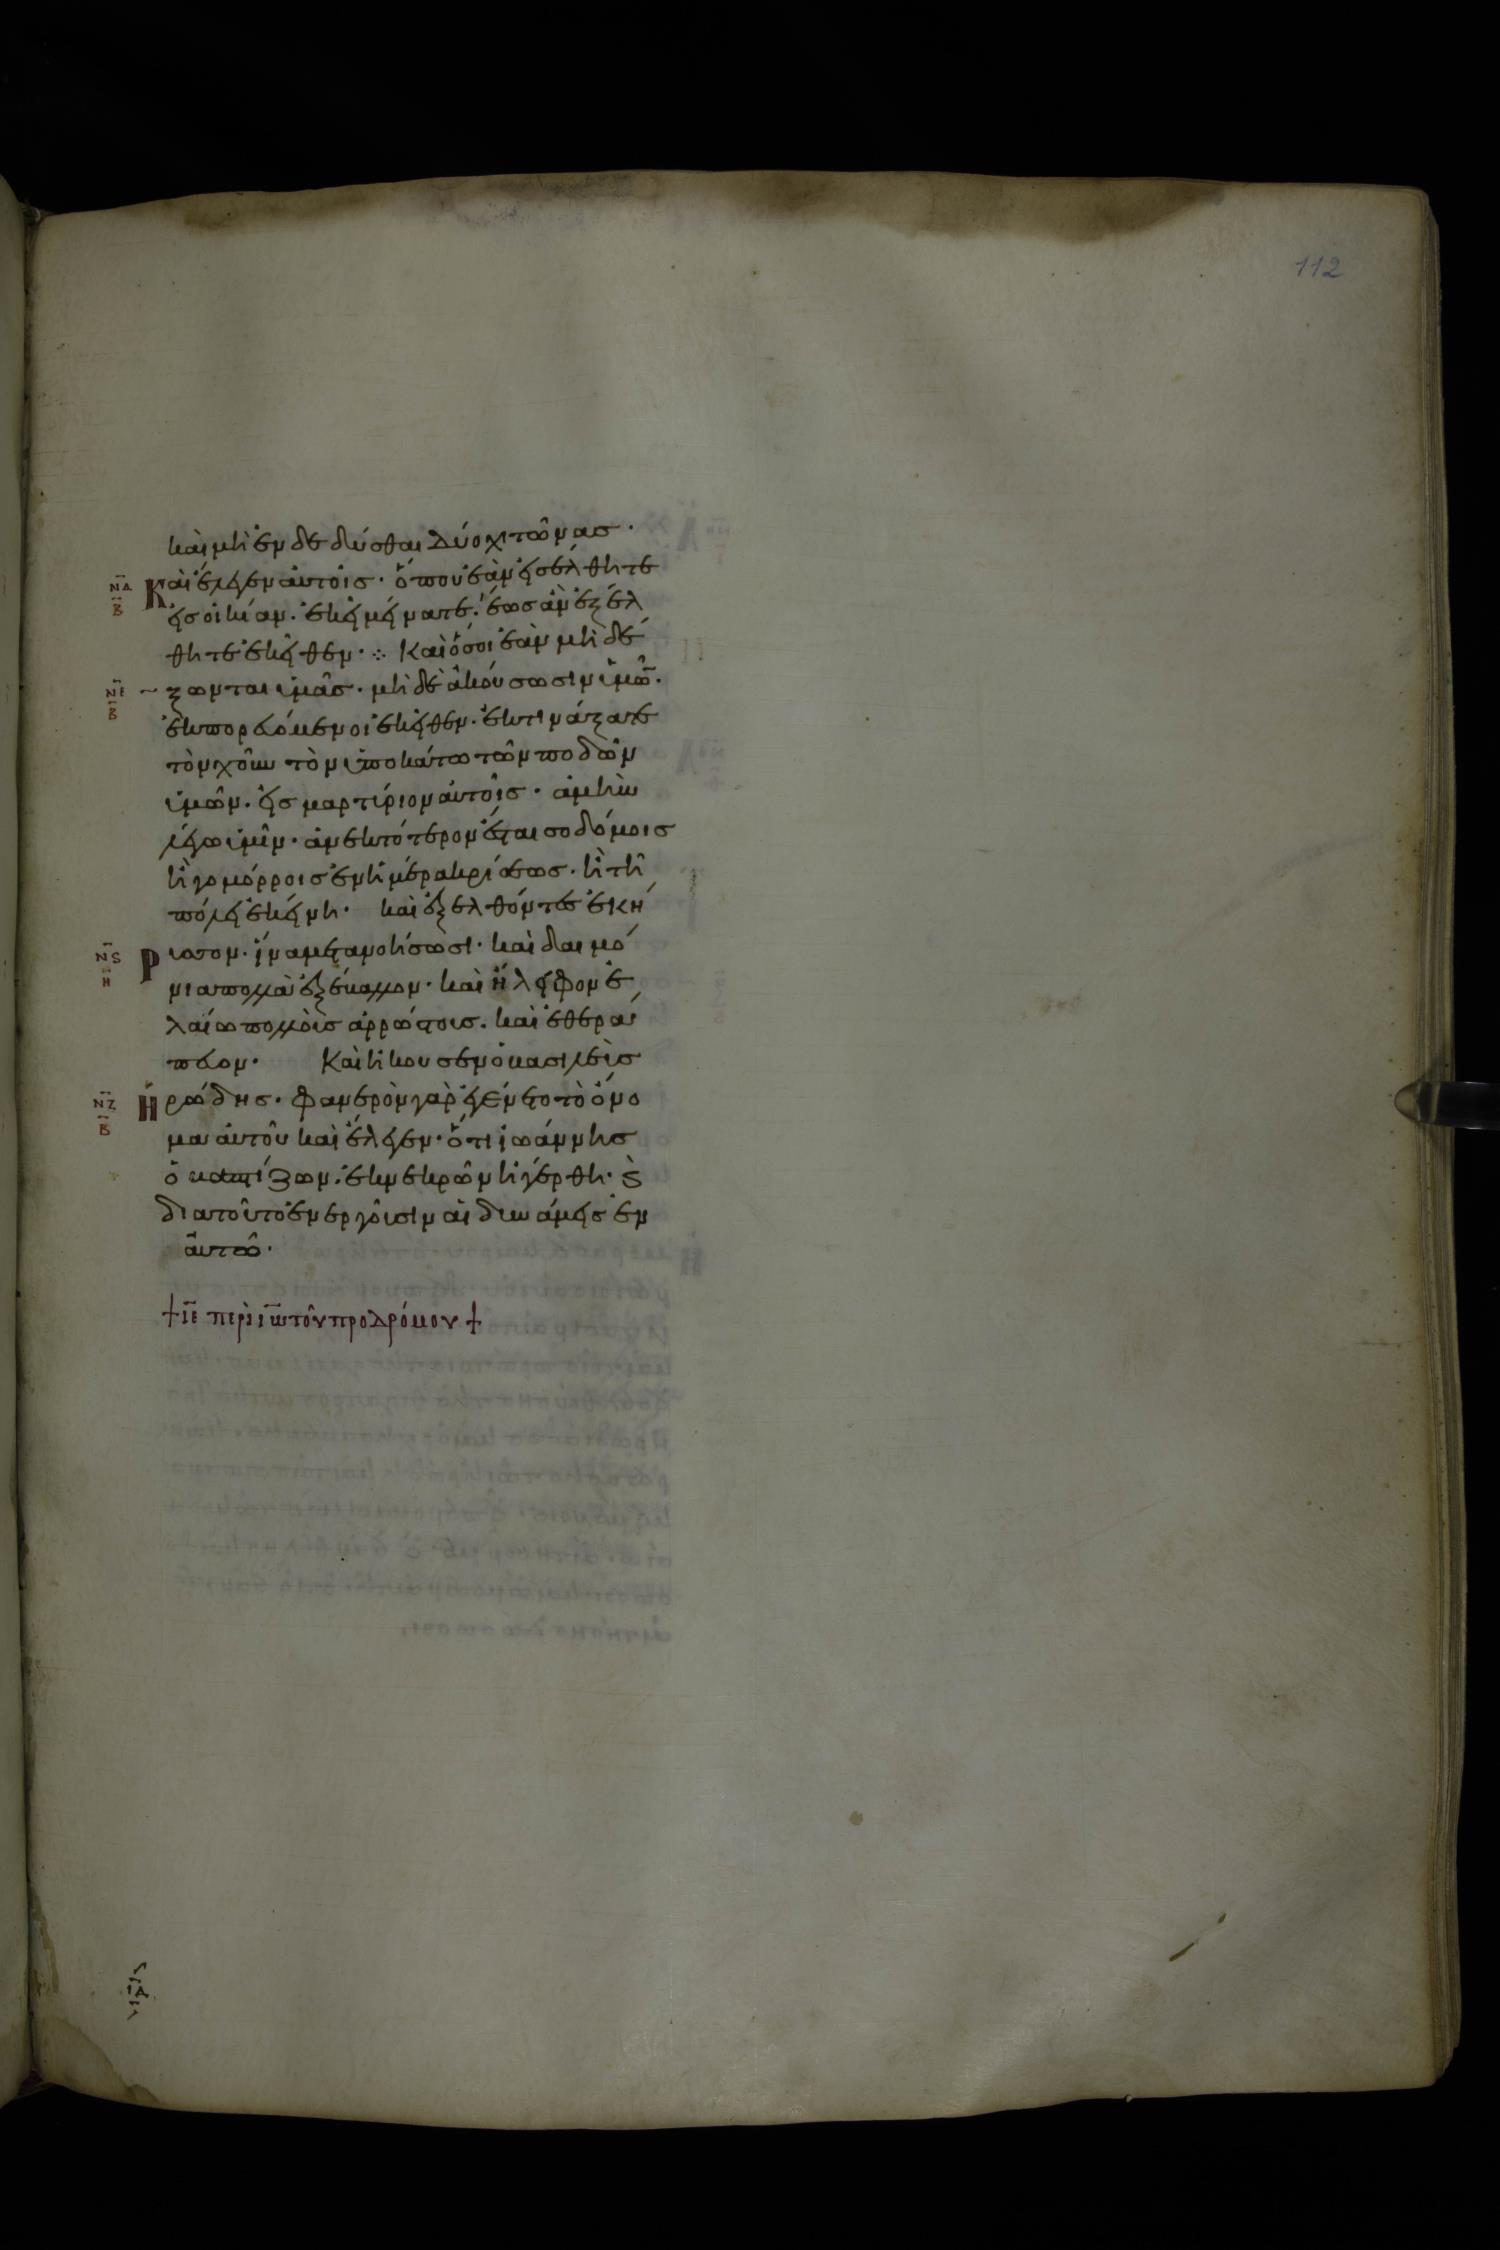 112
καὶ μὴ ἐνδεδύσθαι δύο χιτῶνας·
ΝΔ Β Καὶ ἔλεγεν αὐτοῖς· ὅπου ἐὰν εἰσέλθητε
εἰς οἰκίαν· ἐκεῖ μείνατε· ἕως ἂν ἐξέλ
θητε ἐκεῖθεν· ⁘ Καὶ ὅσοι ἐὰν μὴ δέ
ΝΕ Β ξωνται ὑμᾶς· μὴ δὲ ἀκούσωσιν ὑμῶ̄·
ἐκπορευόμενοι ἐκεῖθεν· ἐκτινάξατε
τὸν χοῦν τὸν ὑποκάτω τῶν ποδῶν
ὑμῶν· εἰς μαρτύριον αὐτοῖς· ἀμὴν
λέγω ὑμῖν· ἀνεκτότερον ἔσται σοδόμοις
ἢ γομόρροις ἐν ἡμέρα κρίσεως· ἢ τῆ
πόλει ἐκείνη· καὶ ἐξελθόντες ἐκή
ΝϚ Η Ρυσσον· ἵνα μετανοήσωσι· καὶ δαιμό
νια πολλὰ ἐξέβαλλον· καὶ ἤλειφον ἐ
λαίω πολλοὺς ἀρρώστους· καὶ ἐθερά
πευον· Καὶ ἤκουσεν ὁ βασιλεὺς
ΝΖ Β Ἡρώδης· φανερὸν γὰρ ἐγένετο τὸ ὄνο
μα αὐτοῦ καὶ ἔλεγεν· ὅτι ἰωάννης
ὁ βαπτίζων· ἐκ νεκρῶν ἠγέρθη· ϗ
διατοῦτο ἐνεργοῦσιν αἱ δυνάμεις ἐν
αὐτῶ·
+ ιε περὶ ιω τοῦ προδρόμου +
ΙΔ